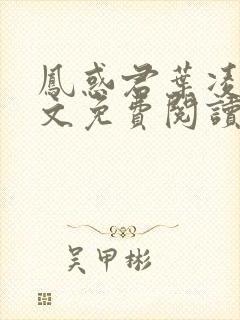 鳳惑君葉凌
文免費閱讀
吳甲彬